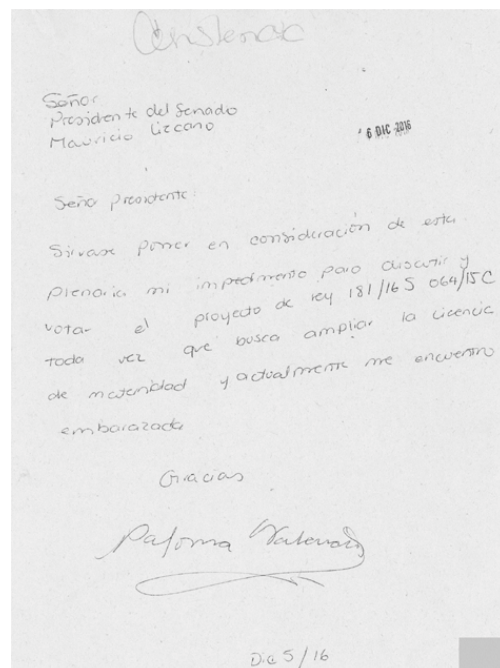 Constancia
Señor
Presidente del Senado
Mauricio Lizcano
6 DIC 2016
Señor presidente:
Sirvase poner en consideración de esta
Plenaria mi impedimento para discutir y
votar el proyecto de ley 181/16 S 064/15 C
toda vez que busca ampliar la licencia
de maternidad y actualmente me encuentro
embarazada
Gracias
Paloma Valencia
Dic 5/16